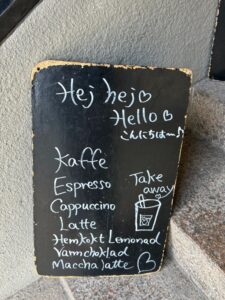 Hej hej♡
Hello♡
こんにちは〜♪
Kaffe
Espresso
Cappuccino
Latte
Hemkokt Lemonad
Varmchoklad
Maccha latte ♡
Take
away